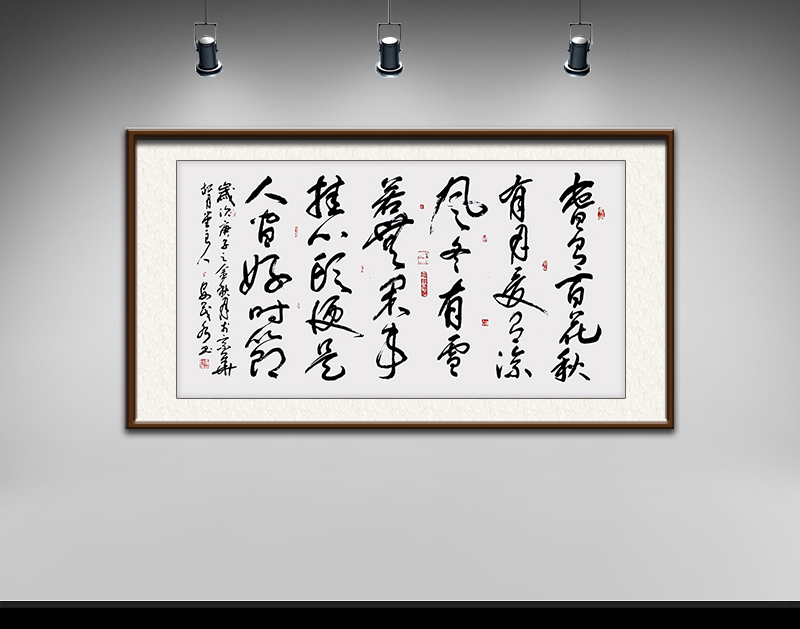 春有百花秋
有月夏有凉
风冬有雪
若无闲事
挂心头便是
人间好时节
岁次庚子之金秋月书